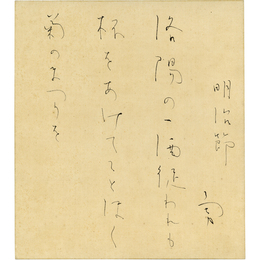 明治節
洛陽の一酒徒われも
杯をあげてことほく
菊のまつりを